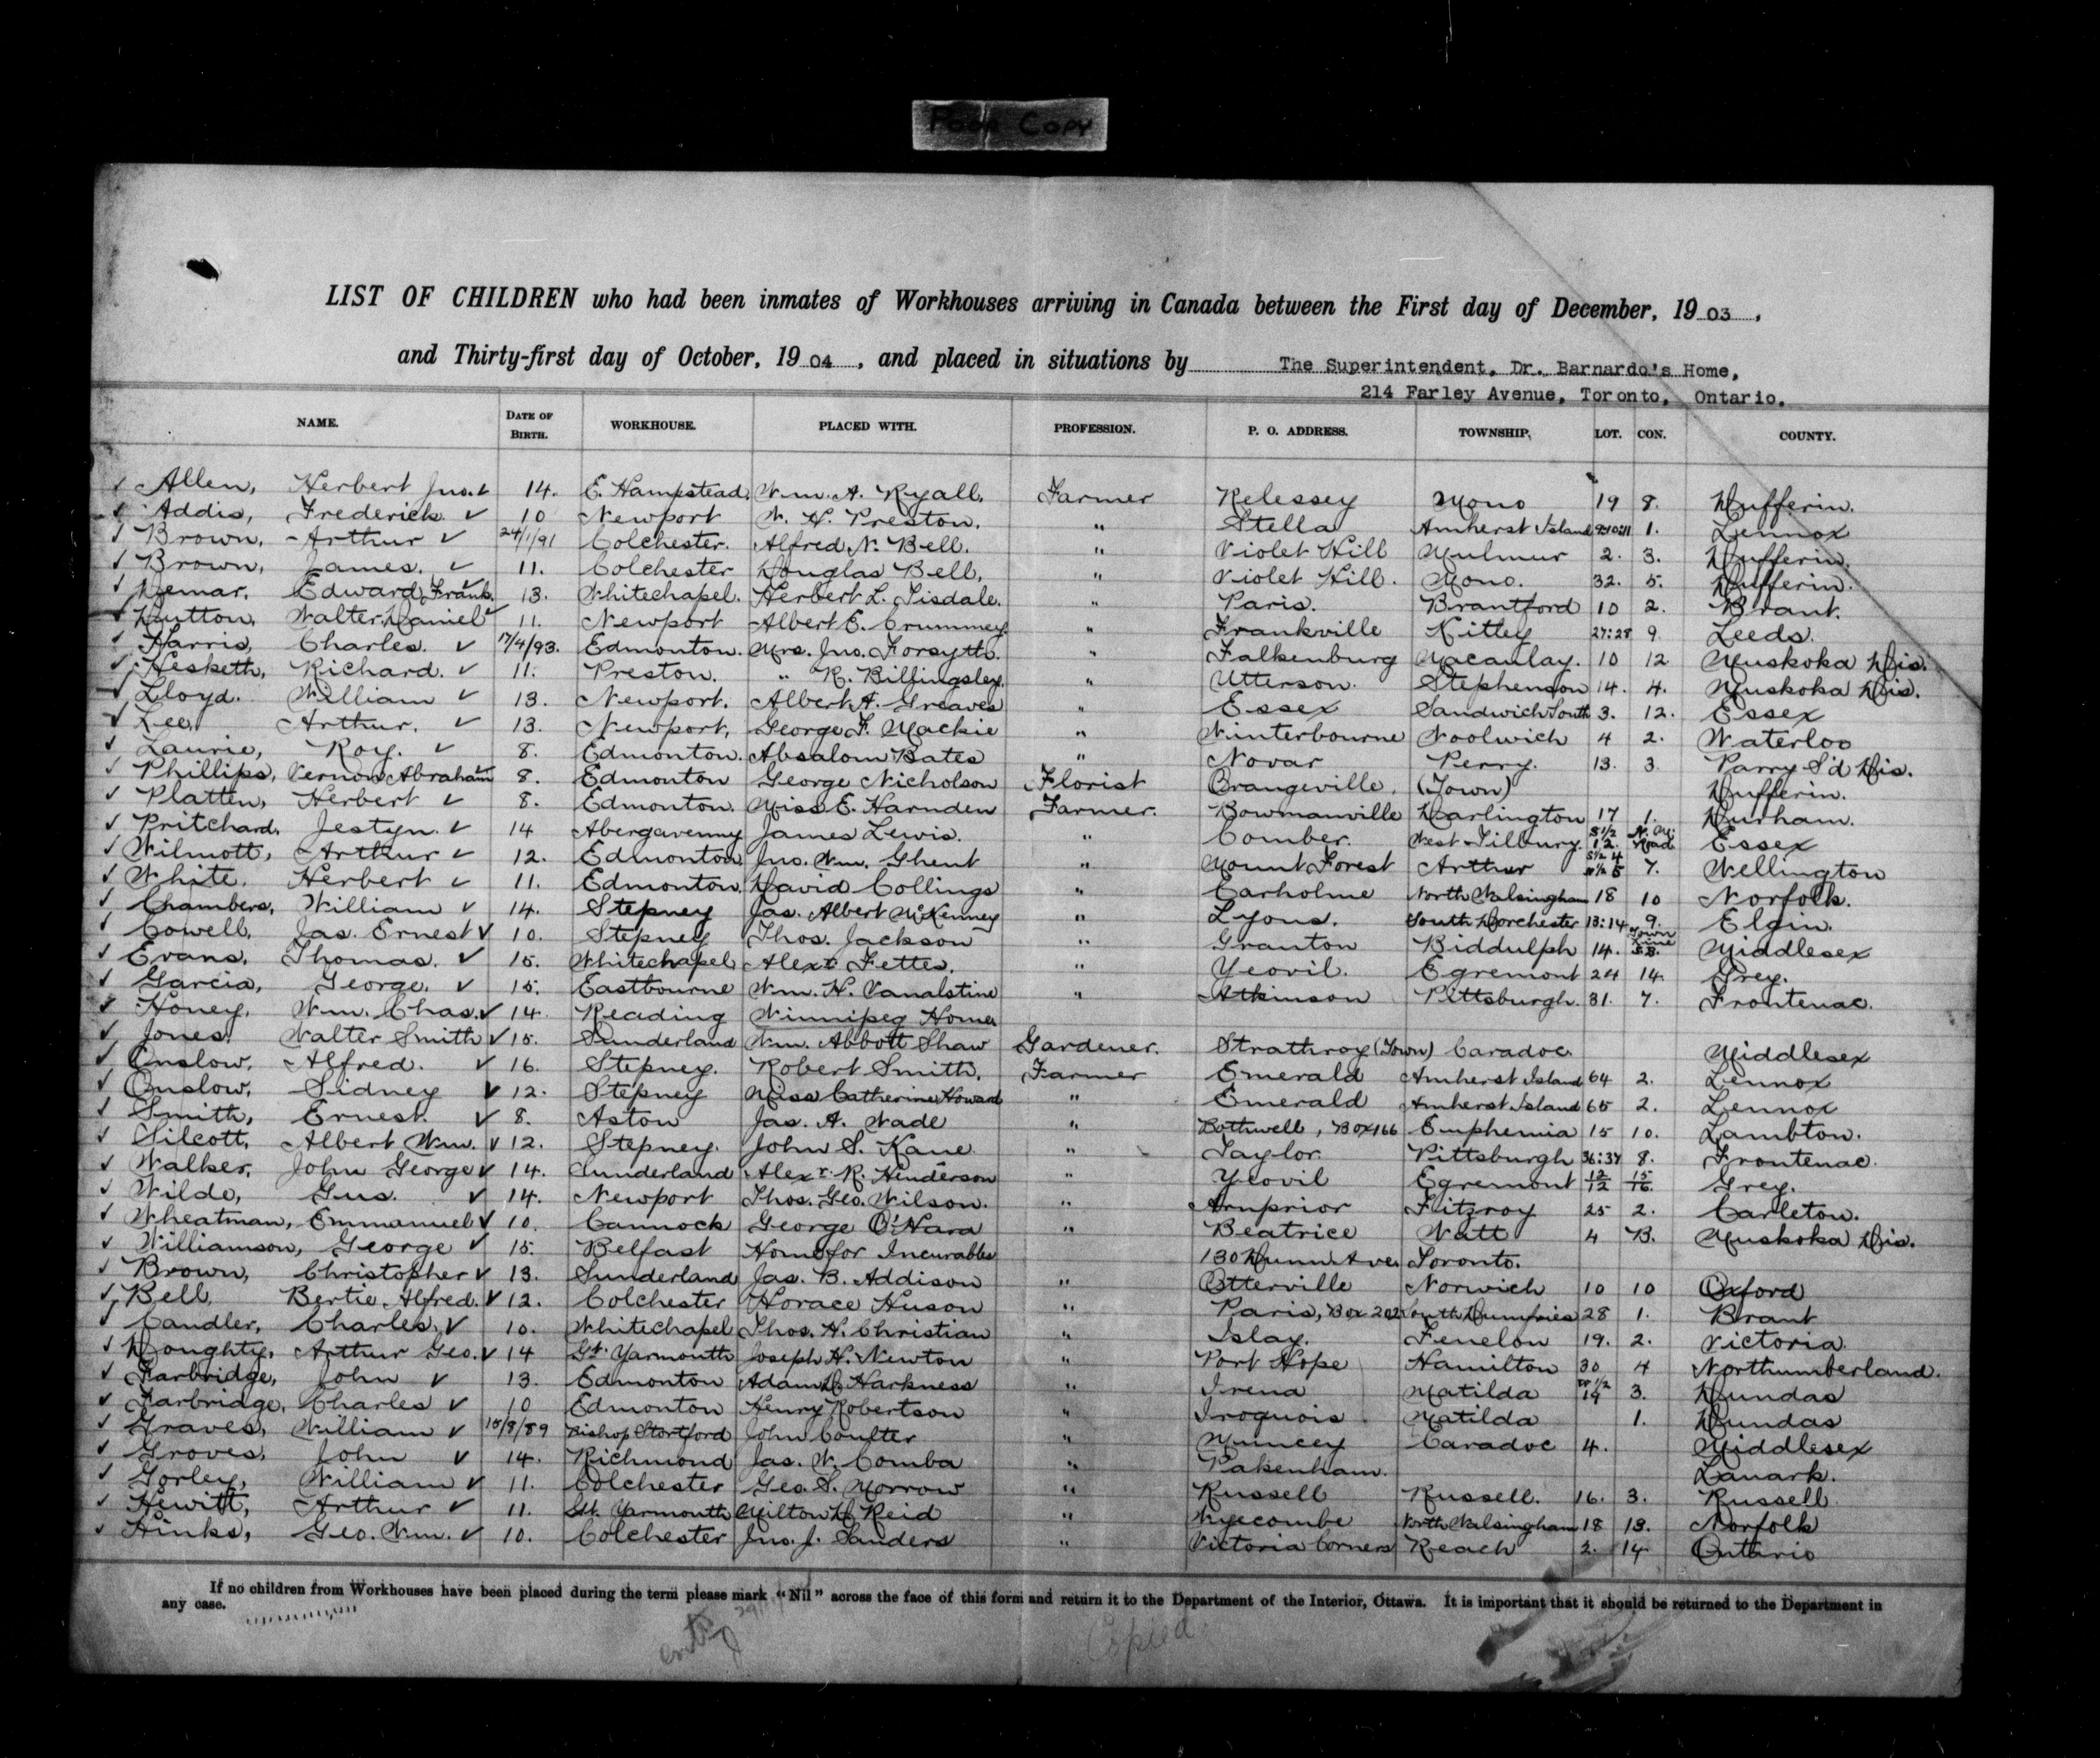 Poor Copy
LIST OF CHILDREN who had been inmates of Workhouses arriving in Canada between the First day of December, 1903,
and Thirty-first day of October, 1904, and placed in situations by The Superintendent, Dr. Barnardo's Home,
214 Farley Avenue, Toronto, Ontario.
NAME. DATE OF BIRTH. WORKHOUSE. PLACED WITH. PROFESSION. P. O. ADDRESS. TOWNSHIP. LOT. CON. COUNTY.
✓ Allen, Herbert Jno. ✓ 14. E. Hampstead. Wm. A. Ryall. Farmer Relessey Mono 19 8. Dufferin.
✓ Addis, Frederick ✓ 10 Newport W. H. Preston. " Stella Amherst Island 9:10:11 1. Lennox
✓ Brown, Arthur ✓ 24/1/91 Colchester. Alfred N. Bell. " Violet Hill Mulmur 2. 3. Dufferin.
✓ Brown, James. ✓ 11. Colchester Douglas Bell, " Violet Hill. Mono. 32. 5. Dufferin.
✓ Demar, Edward Frank. ✓ 13. Whitechapel. Herbert L. Tisdale. " Paris. Brantford 10 2. Brant.
✓ Dutton, Walter Daniel ✓ 11. Newport Albert E. Crummey " Frankville Kitley 27:28 9. Leeds.
✓ Harris, Charles. ✓ 17/4/93. Edmonton. Mrs. Jno. Forsyth. " Falkenburg Macaulay. 10 12 Muskoka Dis.
✓ Hesketh, Richard. ✓ 11. Preston. " R. Billingsley. " Utterson. Stephenson 14. 4. Muskoka Dis.
✓ Lloyd. William ✓ 13. Newport. Albert A. Greaves " Essex Sandwich South 3. 12. Essex
✓ Lee, Arthur. ✓ 13. Newport, George F. Mackie " Winterbourne Woolwich 4 2. Waterloo
✓ Laurie, Roy. ✓ 8. Edmonton. Absalom Bates " Novar Perry. 13. 3. Parry S'd Dis.
✓ Phillips, Vernon Abraham ✓ 8. Edmonton George Nicholson Florist Orangeville. (Town) Dufferin.
✓ Platten, Herbert ✓ 8. Edmonton. Miss E. Harnden Farmer. Bowmanville Darlington 17 1. Durham.
✓ Pritchard, Jestyn. ✓ 14 Abergavenny James Lewis. " Comber. West Tilbury. S 1/2 12. Road Essex
✓ Wilmott, Arthur ✓ 12. Edmonton Jno. Wm. Ghent " Mount Forest Arthur S 1/2 4 N 1/2 5 7. Wellington
✓ White. Herbert ✓ 11. Edmonton. David Collings " Carholme North Walsingham 18 10 Norfolk.
✓ Chambers, William ✓ 14. Stepney Jas. Albert McKenney " Lyons. South Dorchester 13:14 9. Elgin.
✓ Cowell, Jas. Ernest ✓ 10. Stepney Thos. Jackson " Granton Biddulph 14. Town Line Middlesex
✓ Evans, Thomas. ✓ 15. Whitechapel Alexr Fettes. " Yeovil. Egremont 24 14. Grey.
✓ Garcia, George. ✓ 15. Eastbourne Wm. H. Vanalstine " Atkinson Pittsburgh. 31. 7. Frontenac.
✓ Honey, Wm. Chas. ✓ 14. Reading Winnipeg Home
✓ Jones, Walter Smith ✓ 15. Sunderland Wm. Abbott Shaw Gardener. Strathroy (Town) Caradoc. Middlesex
✓ Onslow, Alfred. ✓ 16. Stepney. Robert Smith. Farmer Emerald Amherst Island 64 2. Lennox
✓ Onslow, Sidney ✓ 12. Stepney Miss Catherine Howard " Emerald Amherst Island 65 2. Lennox
✓ Smith, Ernest. ✓ 8. Aston Jas. A. Wade " Bothwell, Box 166 Euphemia 15 10. Lambton.
✓ Silcott, Albert Wm. ✓ 12. Stepney. John S. Kane " Taylor Pittsburgh 36:37 8. Frontenac.
✓ Walker, John George ✓ 14. Sunderland Alexr. R. Henderson " Yeovil Egremont 12/12 15/16. Grey.
✓ Wilde, Gus. ✓ 14. Newport Thos. Geo. Wilson. " Arnprior Fitzroy 25 2. Carleton.
✓ Wheatman, Emmanuel ✓ 10. Cannock George O'Hara " Beatrice Watt 4 B. Muskoka Dis.
✓ Williamson, George ✓ 15. Belfast Home for Incurables 130 Dunn Ave. Toronto.
✓ Brown, Christopher ✓ 13. Sunderland Jas. B. Addison " Otterville Norwich 10 10 Oxford
✓ Bell, Bertie Alfred. ✓ 12. Colchester Horace Huson " Paris, Box 202 South Dumfries 28 1. Brant
✓ Candler, Charles. ✓ 10. Whitechapel Thos. H. Christian " Islay. Fenelon 19. 2. Victoria
✓ Doughty, Arthur Geo. ✓ 14 Gt. Yarmouth Joseph H. Newton " Port Hope Hamilton 30 4 Northumberland.
✓ Farbridge, John ✓ 13. Edmonton Adam D. Harkness " Irena Matilda W 1/2 14 3. Dundas
✓ Farbridge, Charles ✓ 10 Edmonton Henry Robertson " Iroquois Matilda 1. Dundas
✓ Graves, William ✓ 15/8/89 Bishop Stortford John Coulter " Muncey Caradoc 4. Middlesex
✓ Groves, John ✓ 14. Richmond Jas. W. Comba " Pakenham. Lanark.
✓ Gorley, William ✓ 11. Colchester Geo. S. Morrow " Russell Russell. 16. 3. Russell
✓ Hewitt, Arthur ✓ 11. Gt. Yarmouth Milton D. Reid " Wyecombe North Walsingham 18 13. Norfolk
✓ Hinks, Geo. Wm. ✓ 10. Colchester Jno. J. Sanders " Victoria Corners Reach 2. 14 Ontario
If no children from Workhouses have been placed during the term please mark "Nil" across the face of this form and return it to the Department of the Interior, Ottawa. It is important that it should be returned to the Department in
any case.
Copied